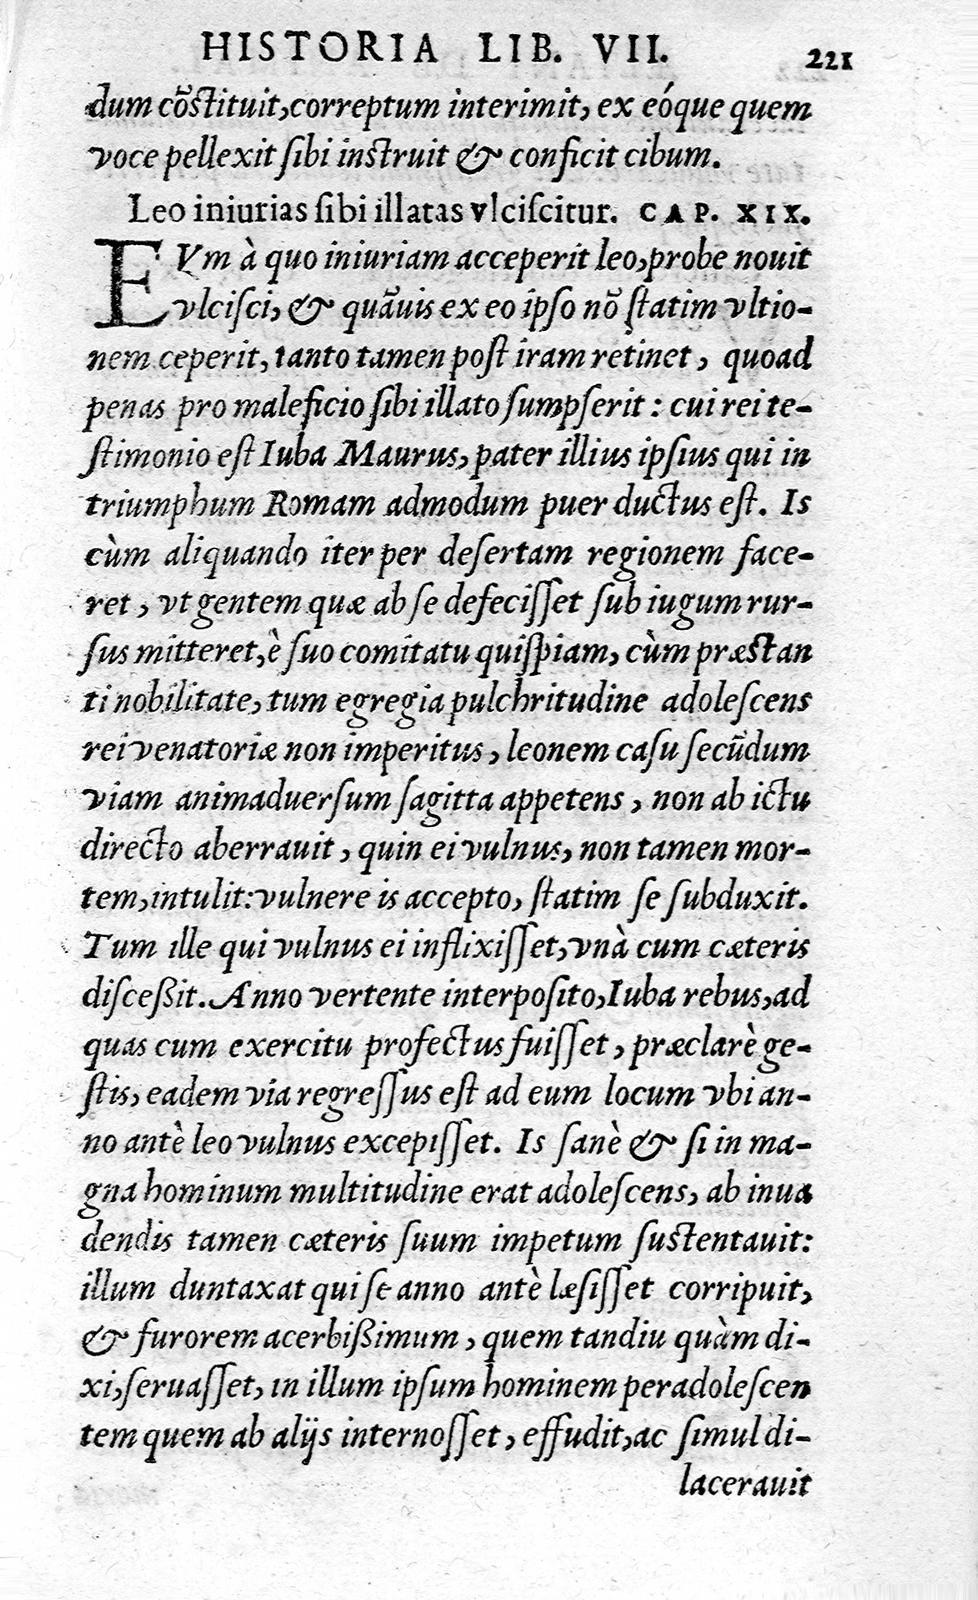 HISTORIA LIB. VII. 221
dum cõstituit, correptum interimit, ex eóque quem
voce pellexit sibi instruit & conficit cibum.
Leo iniurias sibi illatas vlciscitur. CAP. XIX.
EVm à quo iniuriam acceperit leo, probe nouit
vlcisci, & quãuis ex eo ipso nõ statim vltio-
nem ceperit, tanto tamen post iram retinet, quoad
penas pro maleficio sibi illato sumpserit: cui rei te-
stimonio est Iuba Maurus, pater illius ipsius qui in
triumphum Romam admodum puer ductus est. Is
cùm aliquando iter per desertam regionem face-
ret, vt gentem quæ ab se defecisset sub iugum rur-
sus mitteret, è suo comitatu quispiam, cùm præstan
ti nobilitate, tum egregia pulchritudine adolescens
rei venatoriæ non imperitus, leonem casu secũdum
viam animaduersum sagitta appetens, non ab ictu
directo aberrauit, quin ei vulnus, non tamen mor-
tem, intulit: vulnere is accepto, statim se subduxit.
Tum ille qui vulnus ei inflixisset, vnà cum cæteris
disceßit. Anno vertente interposito, Iuba rebus, ad
quas cum exercitu profectus fuisset, præclarè ge-
stis, eadem via regressus est ad eum locum vbi an-
no antè leo vulnus excepisset. Is sanè & si in ma-
gna hominum multitudine erat adolescens, ab inua
dendis tamen cæteris suum impetum sustentauit:
illum duntaxat qui se anno antè læsisset corripuit,
& furorem acerbißimum, quem tandiu quàm di-
xi, seruasset, in illum ipsum hominem per adolescen
tem quem ab alijs internosset, effudit, ac simul di-
lacerauit